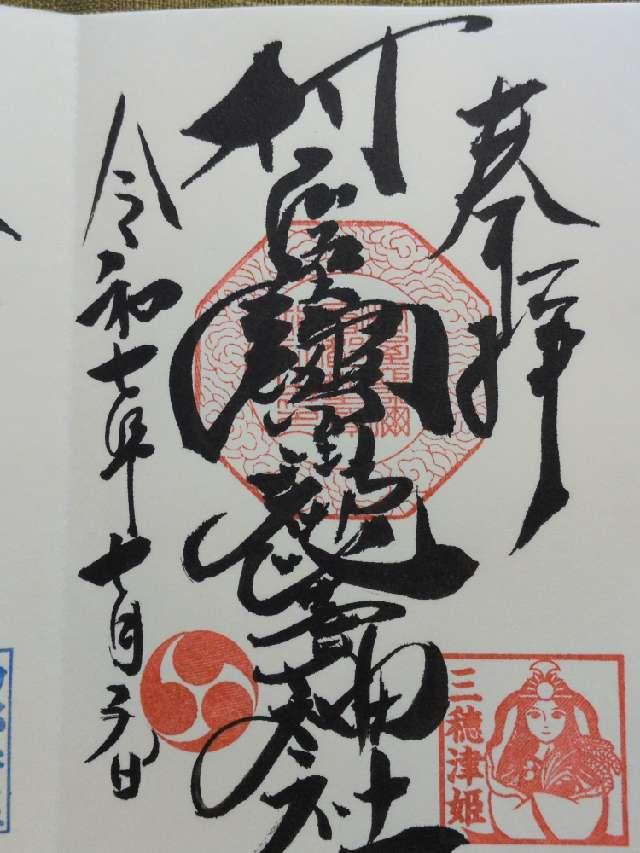 奉拝
村屋坐彌冨都比賣神社
令和七年七月
三穂津姫